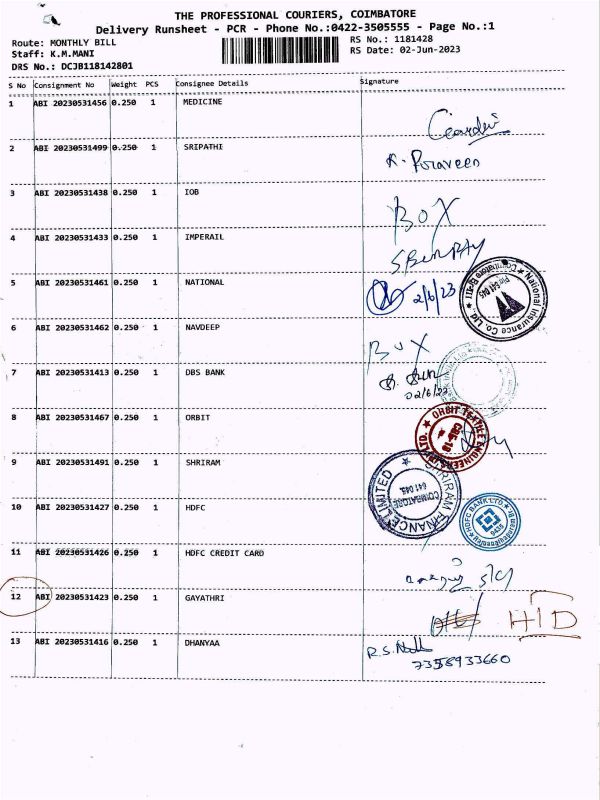 THE PROFESSIONAL COURIERS, COIMBATORE
Delivery Runsheet - PCR - Phone No.:0422-3505555 - Page No.:1
Route: MONTHLY BILL RS No.: 1181428
Staff: K.M.MANI RS Date: 02-Jun-2023
DRS No.: DCJB118142801
S No Consignment No Weight PCS Consignee Details Signature
1 ABI 20230531456 0.250 1 MEDICINE
2 ABI 20230531499 0.250 1 SRIPATHI
K. Poraveen
3 ABI 20230531438 0.250 1 IOB
BOX
4 ABI 20230531433 0.250 1 IMPERAIL
5 ABI 20230531461 0.250 1 NATIONAL
2/6/23
National Insurance Co. Ltd. Coimbatore 641 045
6 ABI 20230531462 0.250 1 NAVDEEP
BOX
7 ABI 20230531413 0.250 1 DBS BANK
02/6/23
8 ABI 20230531467 0.250 1 ORBIT
ORBIT TEXTILE ENGINEERS LTD. CBE-18
9 ABI 20230531491 0.250 1 SHRIRAM
SHRIRAM FINANCE LIMITED COIMBATORE 641 045.
10 ABI 20230531427 0.250 1 HDFC
HDFC BANK LTD.
11 ABI 20230531426 0.250 1 HDFC CREDIT CARD
12 ABI 20230531423 0.250 1 GAYATHRI
H/D
13 ABI 20230531416 0.250 1 DHANYAA
R.S.
7358933660